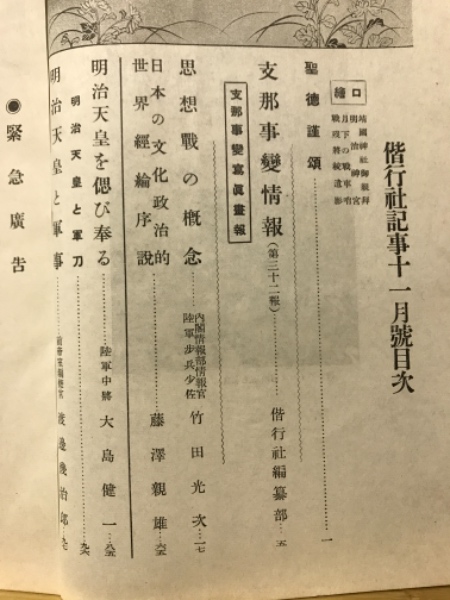 偕行社記事十一月號目次
口繪
靖國神社御親拜
明治神宮
月下の戰車宿
戰歿將兵遺影
聖德謹頌……一
支那事變情報(第三十二報)……偕行社編纂部…五
支那事變寫眞畫報
思想戰の概念……內閣情報部情報官 陸軍步兵少佐 竹田光次…一七
日本の文化政治的世界經綸序說……藤澤親雄…六五
明治天皇を偲び奉る……陸軍中將 大島健一…八五
明治天皇と軍刀……九六
明治天皇と軍事……渡邊幾治郎…九七
●緊急廣告